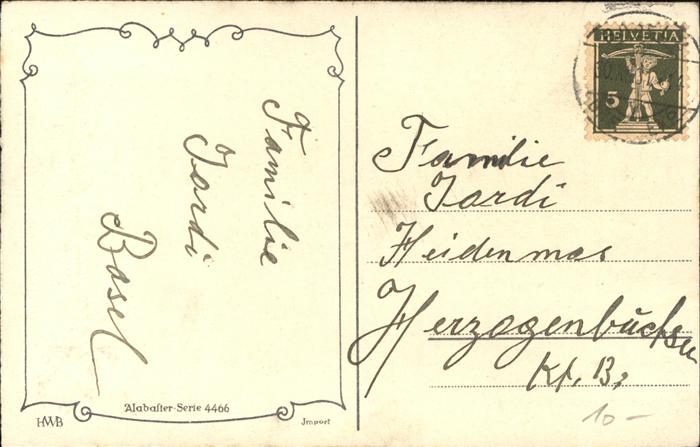 Familie
Jardi
Basel
Alabaster-Serie 4466
HWB
Import
HELVETIA
5
Familie
Jardi
Heidenmos
Herzogenbuchsee
Kt. B.
10 –